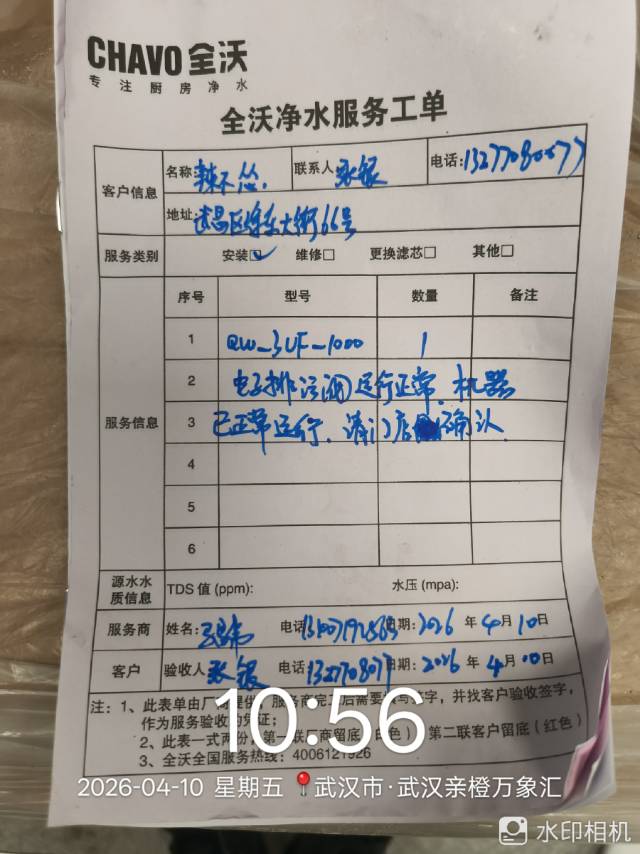 CHAVO 全沃
专注厨房净水
全沃净水服务工单
客户信息 名称: 辣不怂. 联系人 张银 电话:
地址: 武昌区徐东大街66号
服务类别 安装☑ 维修□ 更换滤芯□ 其他□
服务信息 序号 型号 数量 备注
1 QW_3UF-1000 1
2 电子排污阀运行正常. 机器
3 已正常运行, 请门店确认
4
5
6
源水水质信息 TDS 值 (ppm): 水压 (mpa):
服务商 姓名: 电话 日期: 2026 年 4 月 10 日
客户 验收人 张银 电话 日期: 2026 年 4 月 10 日
注: 1、此表单由厂 服务商完 后需要 写 字, 并找客户验收签字,
作为服务验收的凭证;
2、此表一式两份, 第一联 商留底 (白色) 第二联客户留底 (红色)
3、全沃全国服务热线: 4006121926
10:56
2026-04-10 星期五 武汉市·武汉亲橙万象汇
水印相机